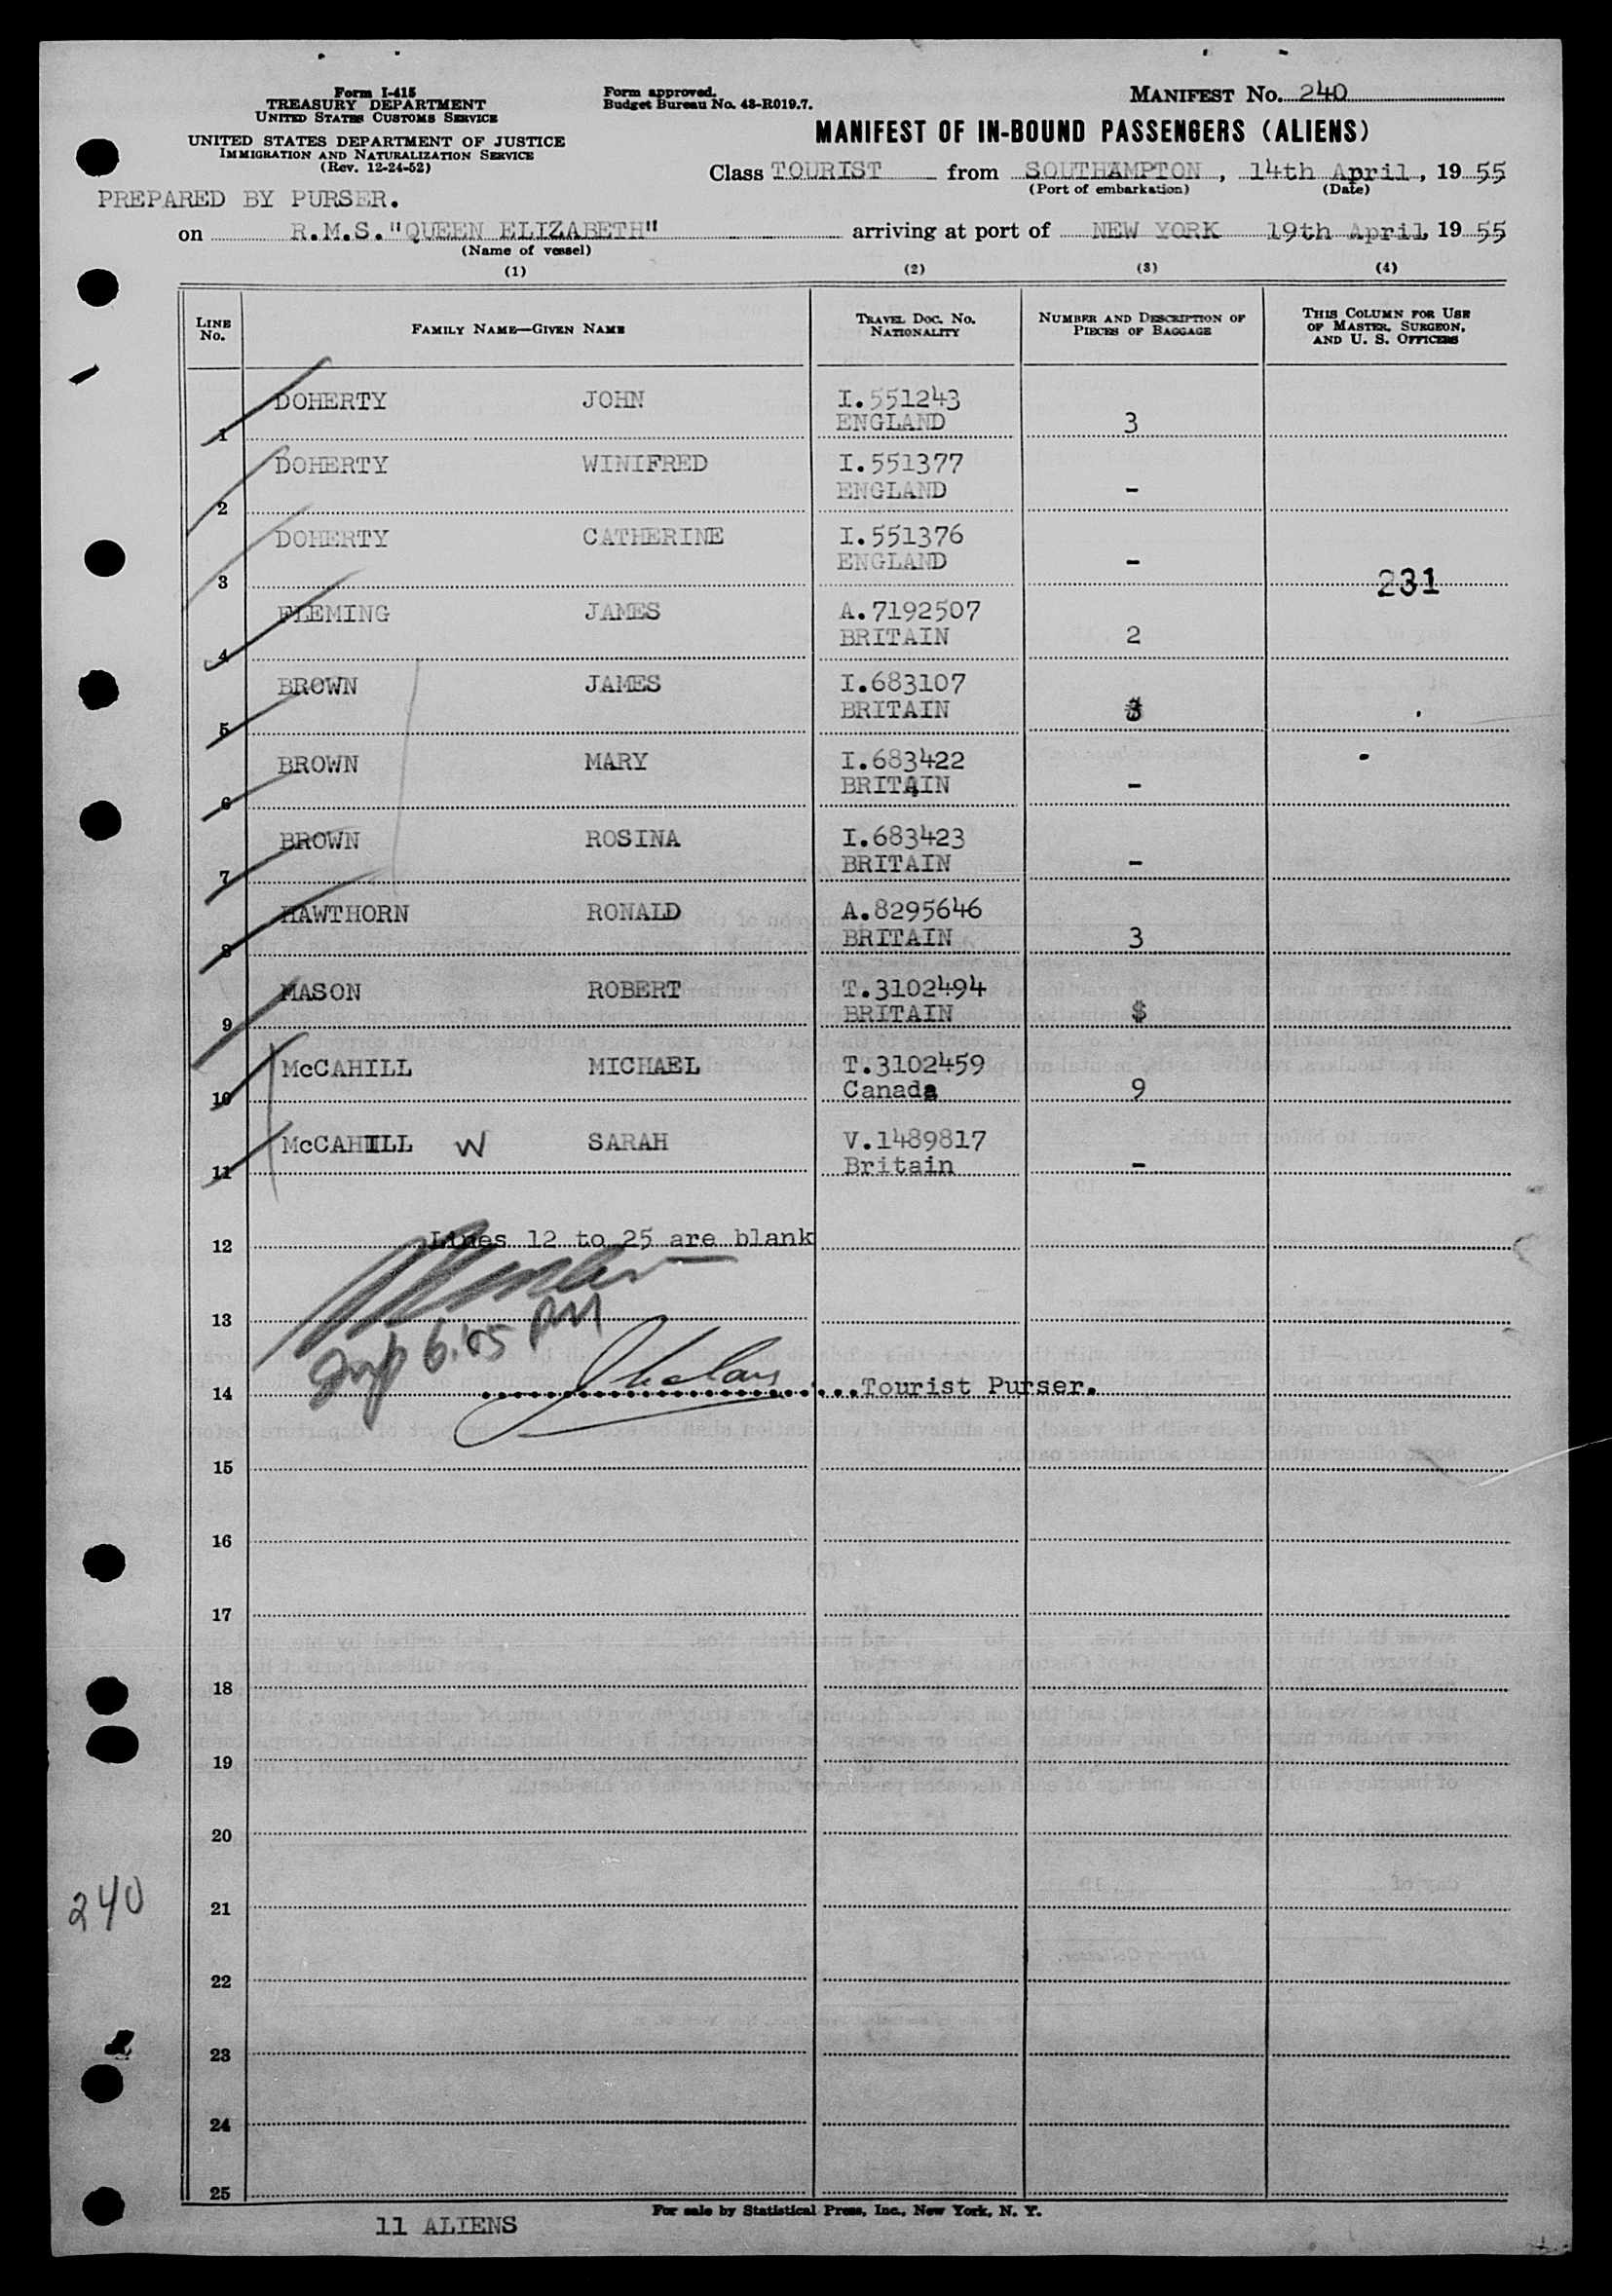 Form I-415
TREASURY DEPARTMENT
UNITED STATES CUSTOMS SERVICE
UNITED STATES DEPARTMENT OF JUSTICE
IMMIGRATION AND NATURALIZATION SERVICE
(Rev. 12-24-52)
Form approved.
Budget Bureau No. 43-R019.7.
MANIFEST NO. 240
MANIFEST OF IN-BOUND PASSENGERS (ALIENS)
Class TOURIST from SOUTHAMPTON, 14th April, 1955
(Port of embarkation) (Date)
PREPARED BY PURSER.
on R.M.S."QUEEN ELIZABETH" arriving at port of NEW YORK 19th April, 1955
(Name of vessel)
(1) (2) (3) (4)
LINE NO. FAMILY NAME—GIVEN NAME TRAVEL DOC. NO. NATIONALITY NUMBER AND DESCRIPTION OF PIECES OF BAGGAGE THIS COLUMN FOR USE OF MASTER, SURGEON, AND U. S. OFFICERS
DOHERTY JOHN I.551243
1 ENGLAND 3
DOHERTY WINIFRED I.551377
2 ENGLAND -
DOHERTY CATHERINE I.551376
3 ENGLAND -
231
FLEMING JAMES A.7192507
4 BRITAIN 2
BROWN JAMES I.683107
5 BRITAIN
BROWN MARY I.683422
6 BRITAIN -
BROWN ROSINA I.683423
7 BRITAIN -
HAWTHORN RONALD A.8295646
8 BRITAIN 3
MASON ROBERT T.3102494
9 BRITAIN $
McCAHILL MICHAEL T.3102459
10 Canada 9
McCAHILL W SARAH V.1489817
11 Britain -
12 Lines 12 to 25 are blank
13
6:05 PM
14 Tourist Purser.
15
16
17
18
19
20
240
21
22
23
24
25
For sale by Statistical Press, Inc., New York, N. Y.
11 ALIENS